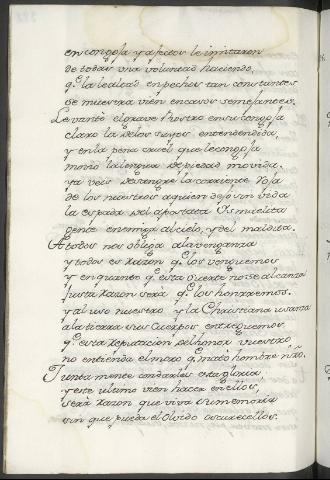 en congoja y afectos le imitaron
de todos una voluntad haciendo,
q.e la lealtad en pechos tan constantes
se muestra vien en casos semejantes.
Levantò el grave Rostro en su congoja
claro la de los suyos entendendida,
y en la pena cruel que le congoja
moviò la lengua de piedad movida.
ya veis de sangre la corriente Roja
de los nuestros a quien dejò sin vida
la espada del apostata Ismaelita
gente enemiga al cielo, y del maldita.
A todos nos obliga a la venganza
y todos es razon q.e los venguemos
y en quanto q.e esta quenta no se alcanza
justa razon serà q.e los honrremos.
y al uso nuestro y la Christiana usanza
a la tierra sus Cuerpos entreguemos.
q.e esta Reputacion del honor vuestro
no entienda el moro q.e matò hombre nro.
Juntamente con darles esta gloria
y este ultimo vien hacer en ellos,
serà razon que viva su memoria
sin que pueda el Olvido oscurecellos.